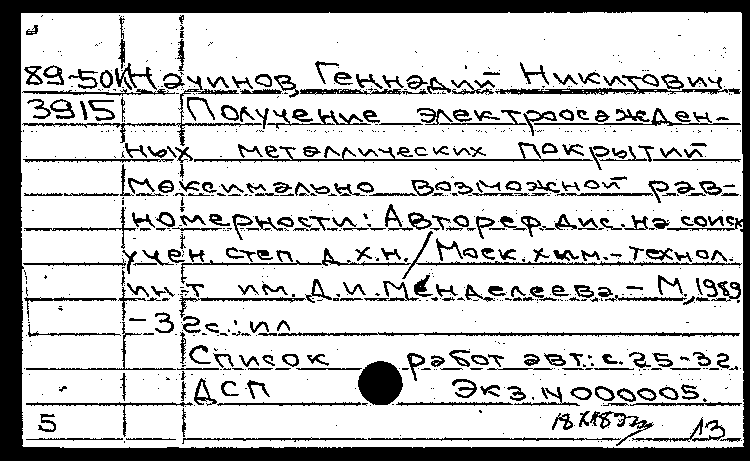 89-50к Начинов Геннадий Никитович
3915 Получение электроосажден-
ных металлических покрытий
максимально возможной рав-
номерности: Автореф. дис. на соиск.
учен. степ. д.х.н. / Моск. хим.-технол.
ин-т им. Д.И. Менделеева. - М., 1989
- 32с.: ил
Список работ авт.: с. 25-32.
ДСП Экз. N 000005.
5 13